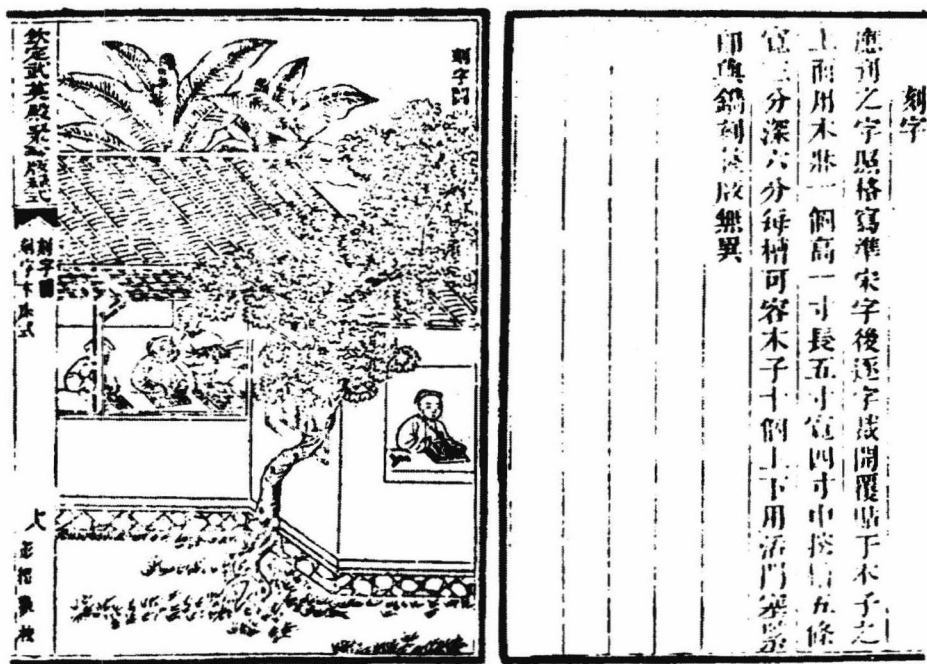 刻字
應刊之字照格寫準宋字後逐字裁開覆貼于木子之
上面用木牀一個高一寸長五寸寬四寸中挖槽五條
寬三分深六分每槽可容木子十個上下用活閂塞緊
與鐫刻版無異
刻字圖
欽定武英殿聚珍版程式
刻字圖
刻字木牀式